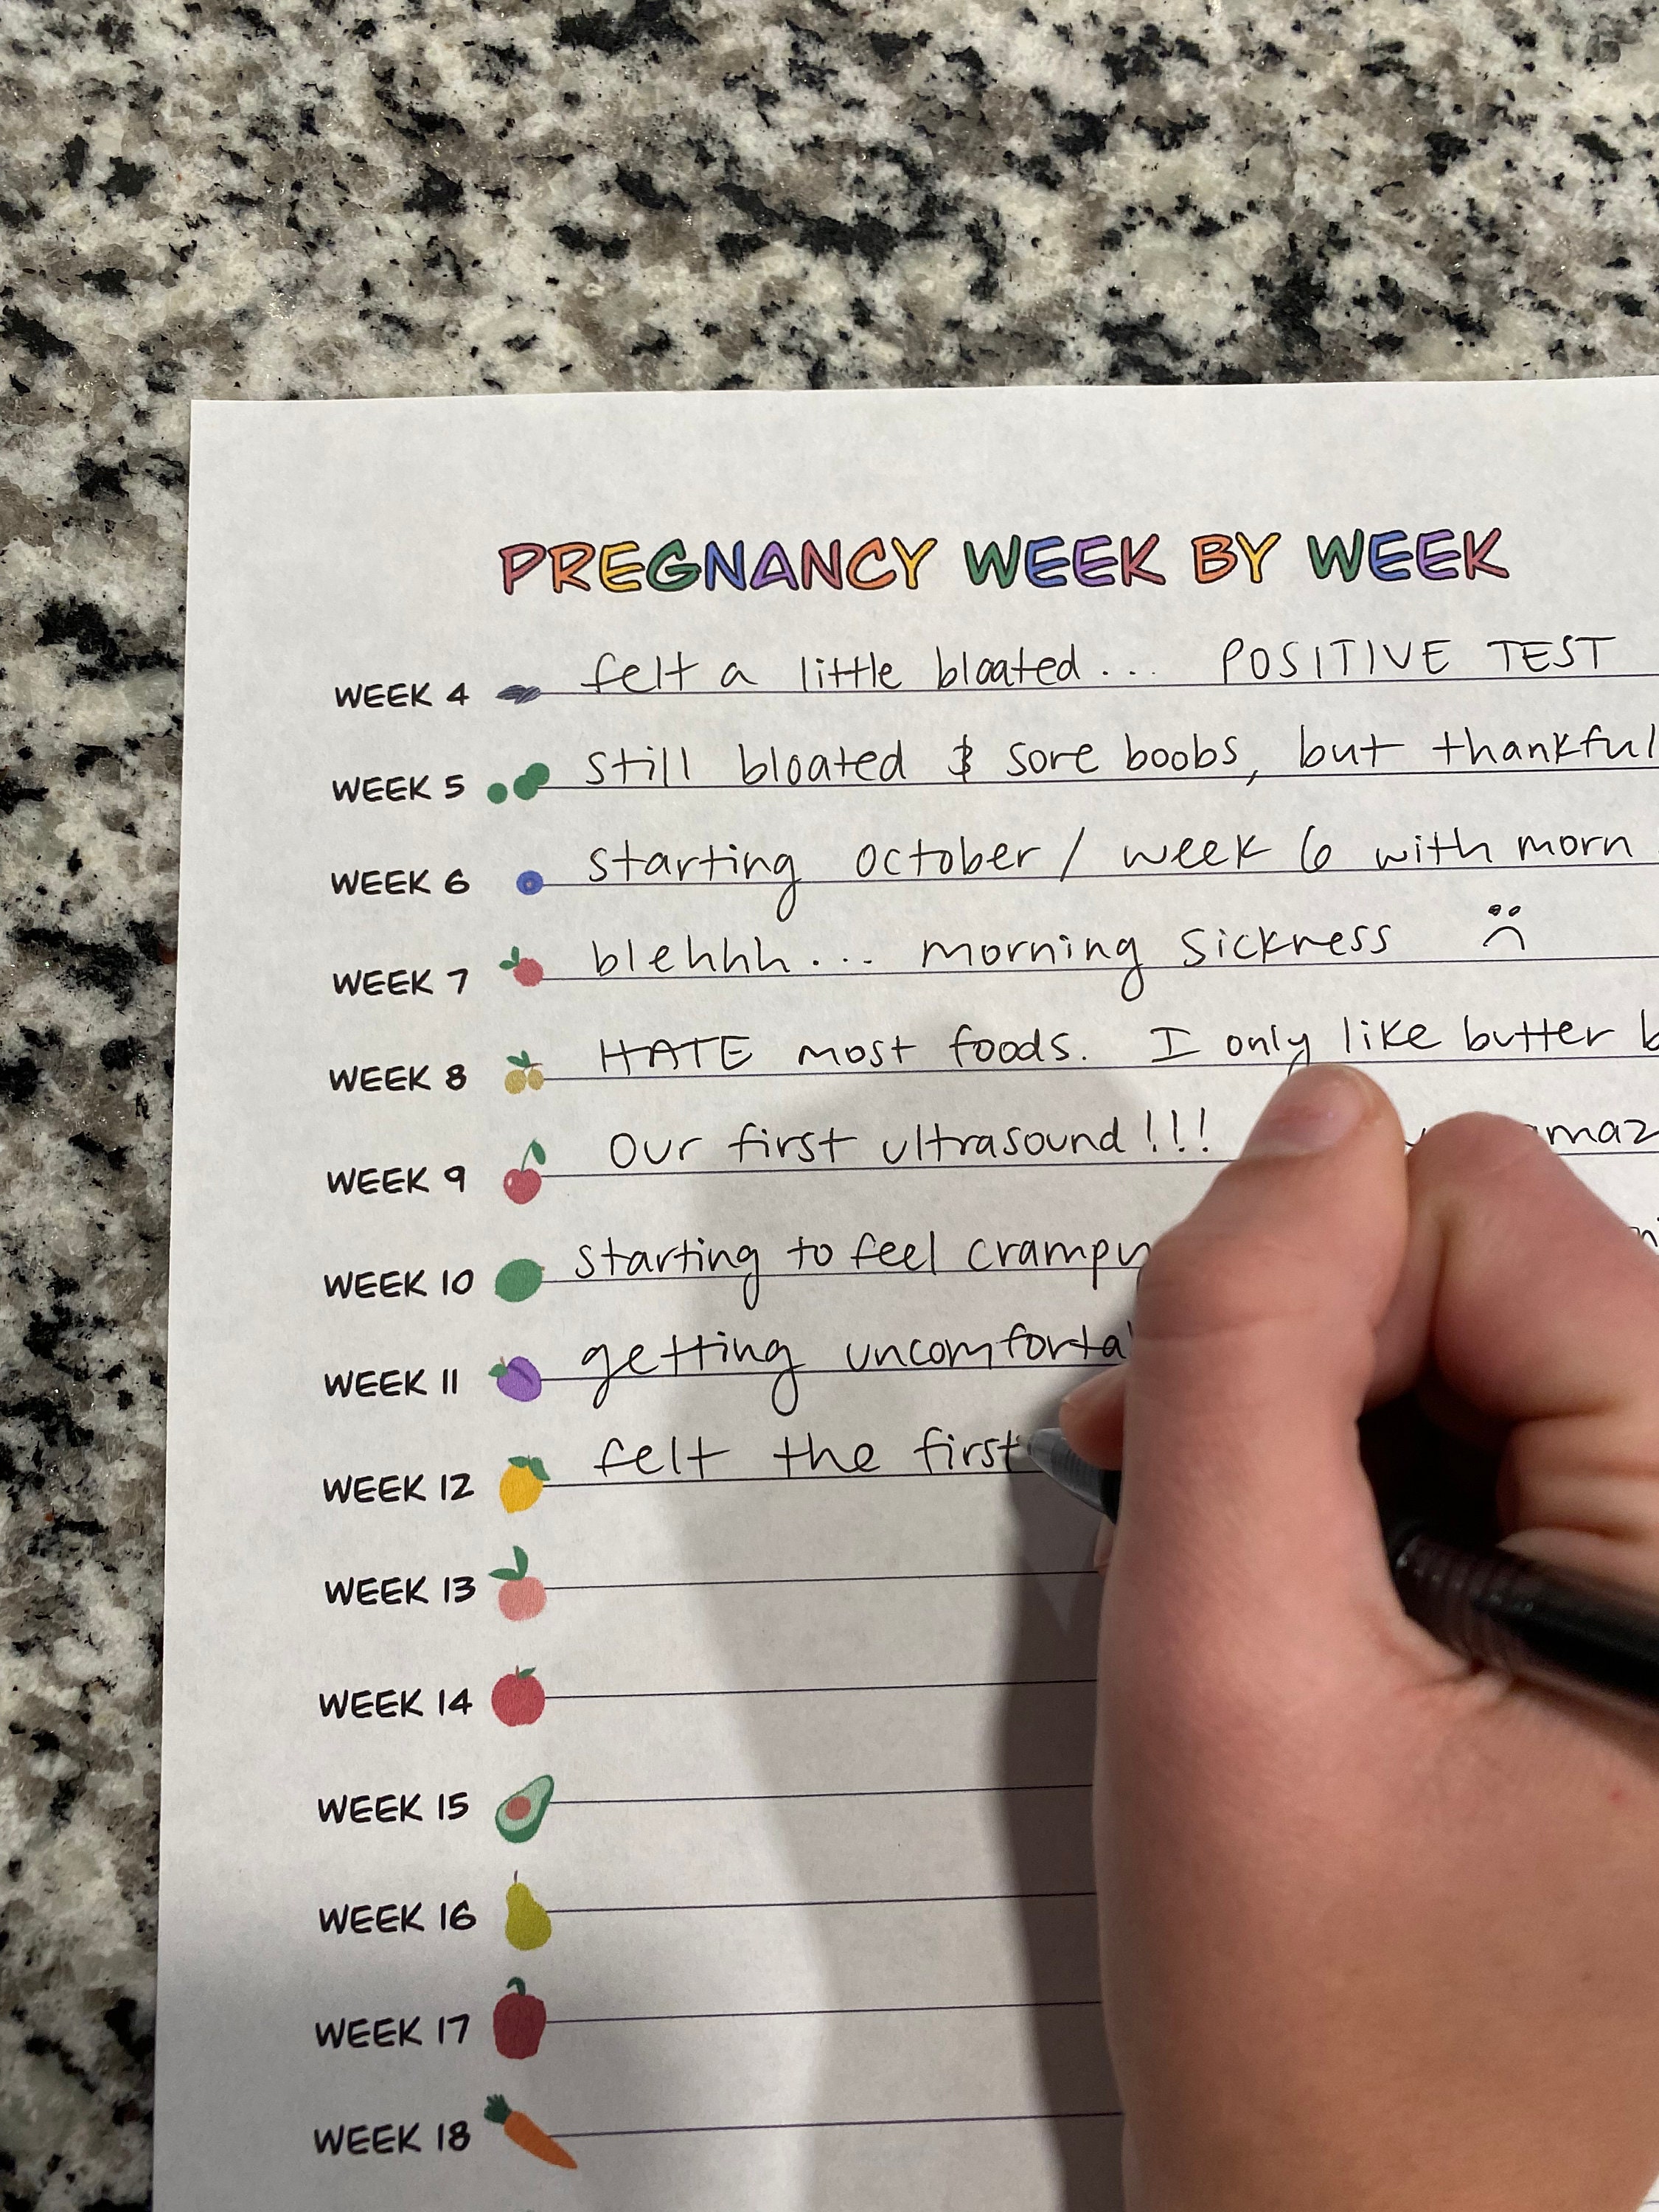 PREGNANCY WEEK BY WEEK
WEEK 4 felt a little bloated... POSITIVE TEST
WEEK 5 still bloated & sore boobs, but thankful
WEEK 6 starting october / week 6 with morn
WEEK 7 blehhh... morning sickness
WEEK 8 HATE most foods. I only like butter
WEEK 9 our first ultrasound!!!
WEEK 10 starting to feel
WEEK 11 getting
WEEK 12 felt the first
WEEK 13
WEEK 14
WEEK 15
WEEK 16
WEEK 17
WEEK 18